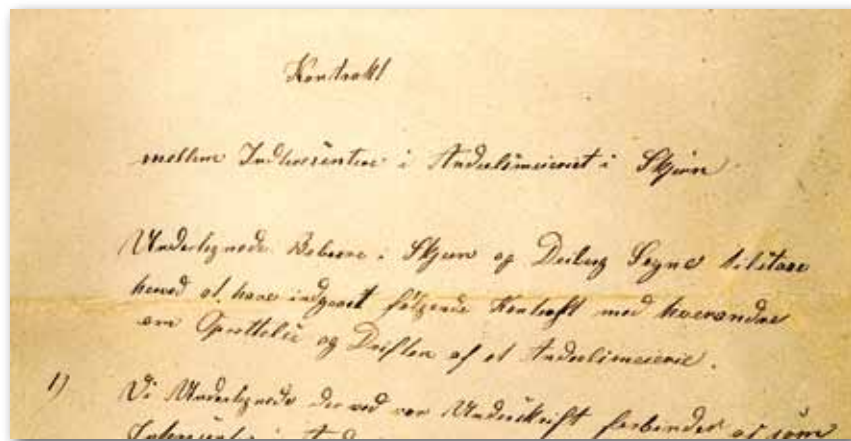 Kontrakt
mellem Interessenterne i Andelsmeieriet i Skjern
Undertegnede Beboere i Skjern og Dejbjerg Sogne tilstaae
herved at have indgaaet følgende Kontrakt med hverandre
om Oprettelse og Driften af et Andelsmeierie.
1) Vi Undertegnede der ved vor Underskrift forbinder os som